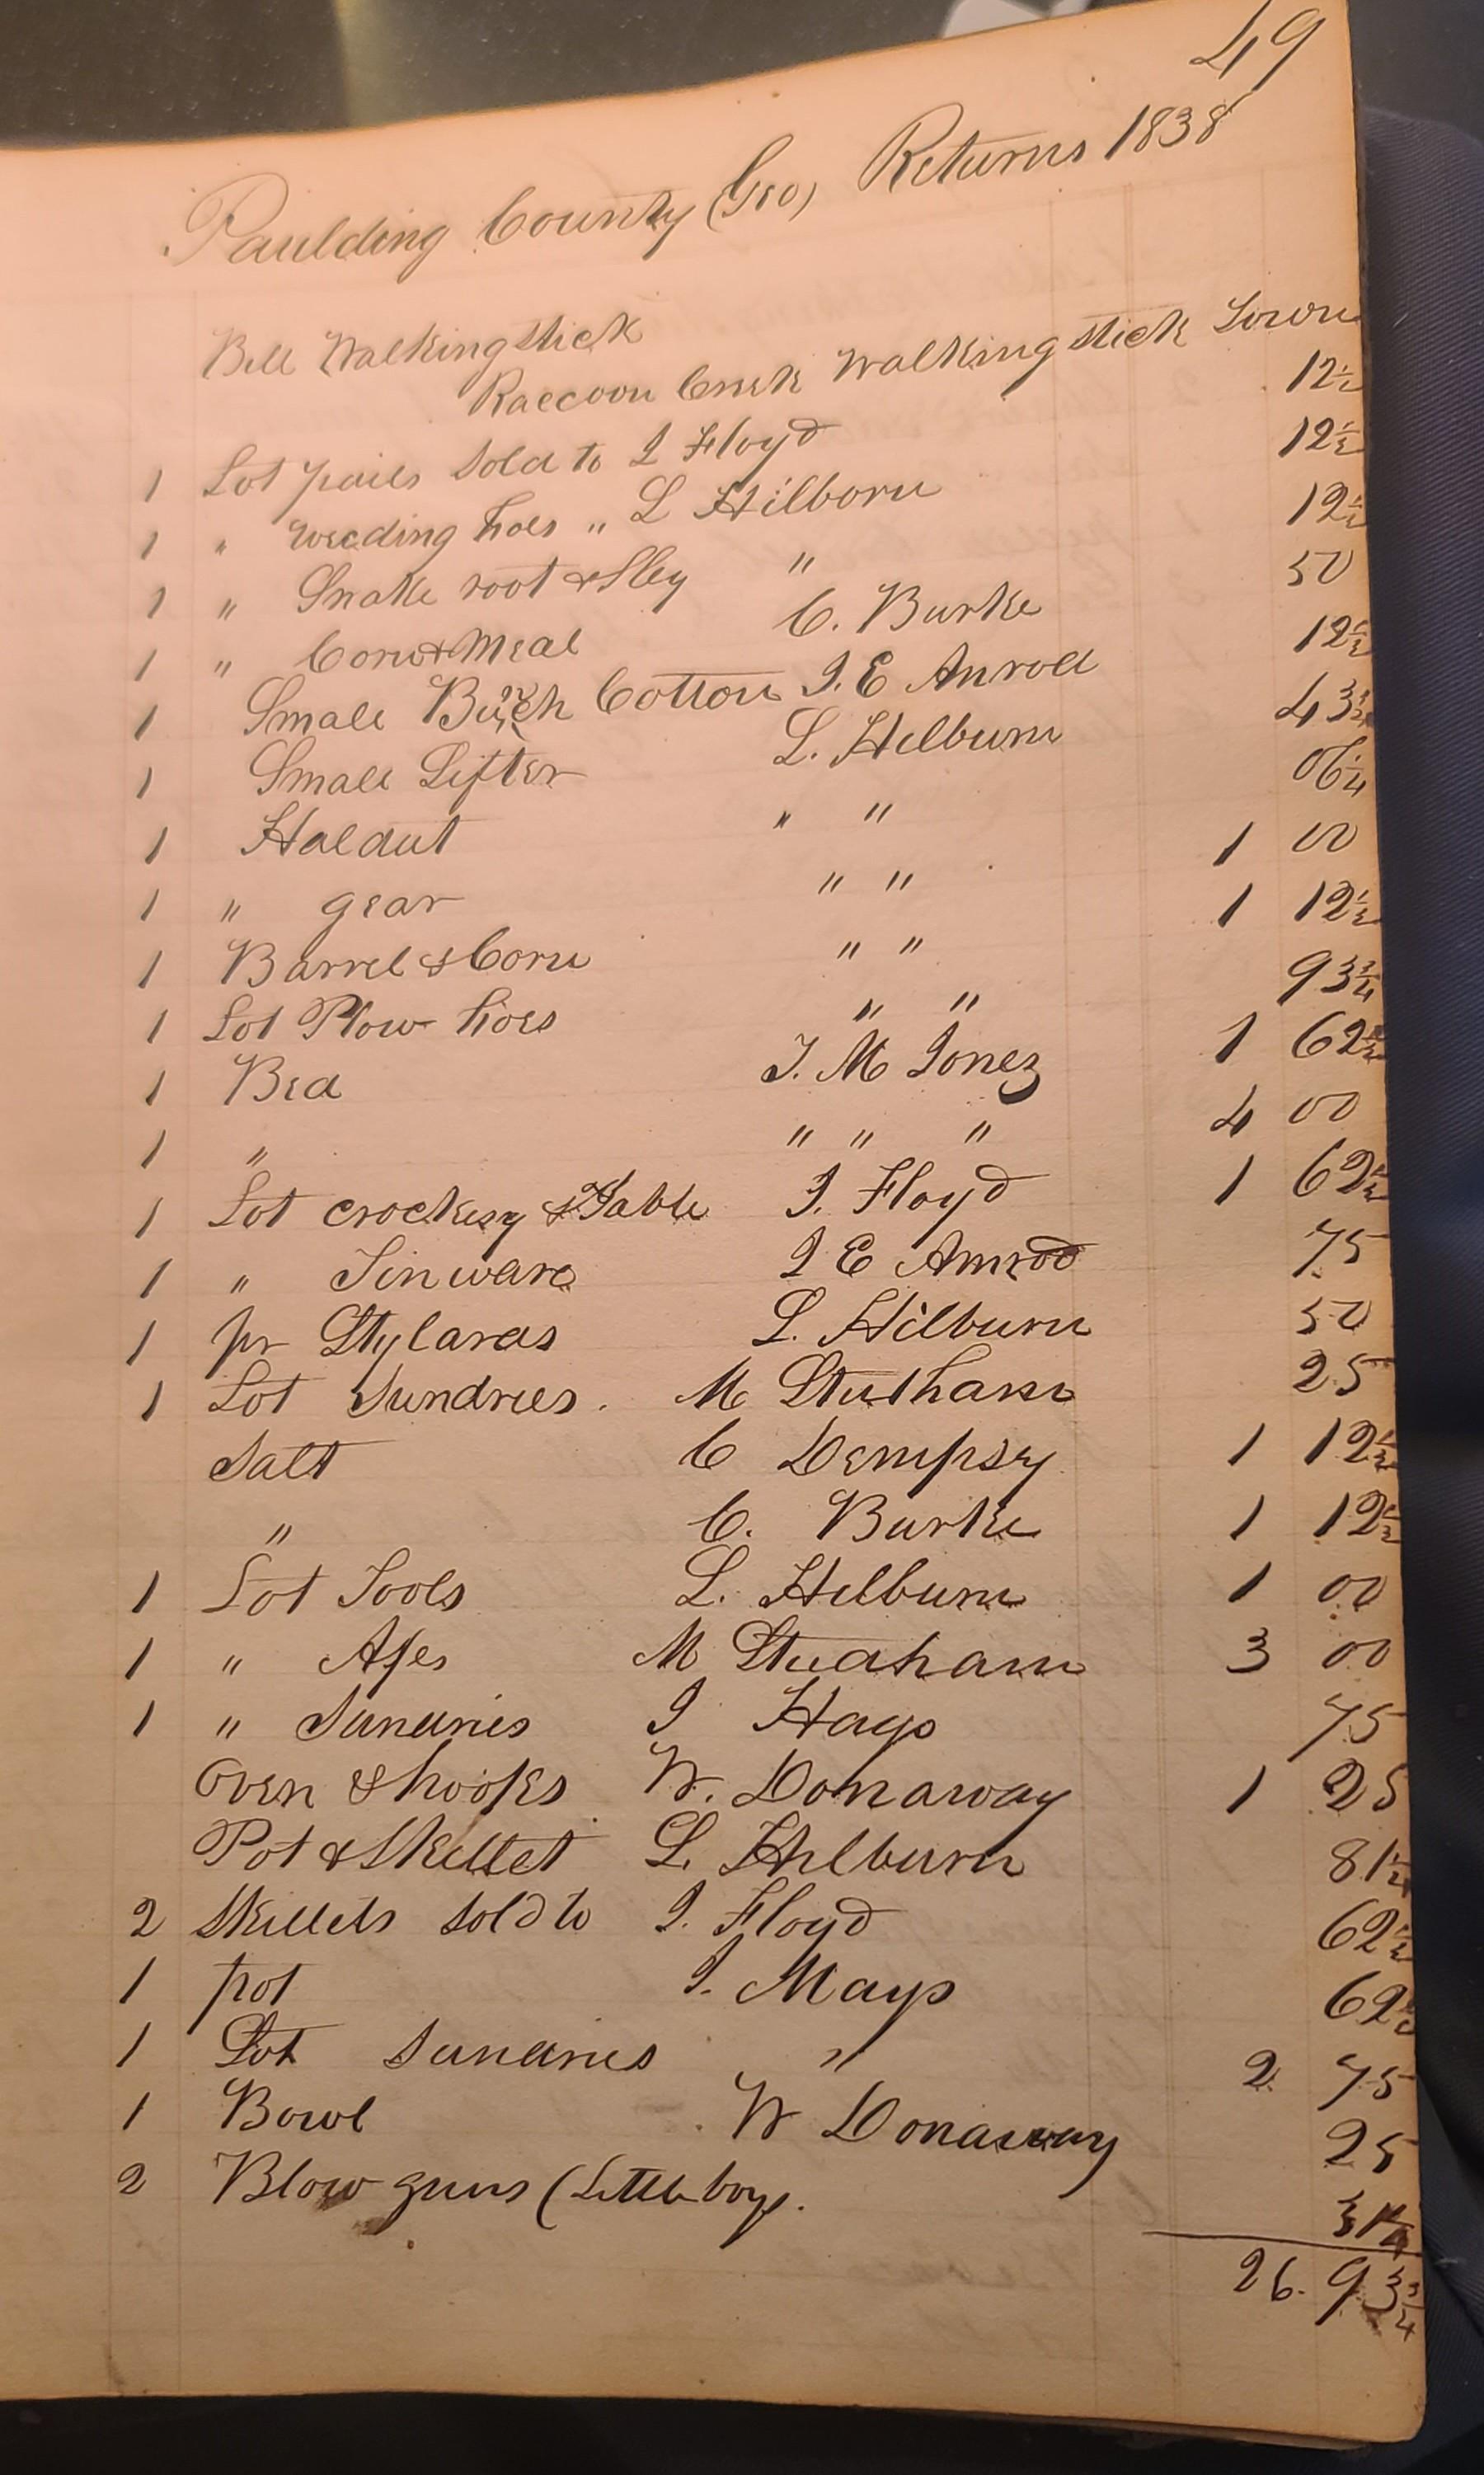 49
Paulding County (Geo) Returns 1838
Bill Walkingstick
Raccoon Creek Walkingstick Town
1 Lot pails sold to I Floyd 12½
1 " weeding hoes " L Hilborn 12½
1 " Snake root & Sley " 12½
1 " Corn & Meal C. Burke 50
1 Small Bunch Cotton I. E Anrod 12½
1 Small Lifter L. Hilburn 43¾
1 Haldut " " 06¼
1 " gear " " 1 00
1 Barrel & Corn " " 1 12½
1 Lot Plow hoes " " 93¾
1 Bed T. M Jones 1 62½
1 " " " " 4 00
1 Lot crockery & Table I. Floyd 1 62½
1 " Tinware I E Amrod 75
1 pr Stylards L. Hilburn 50
1 Lot Sundries. M Stutham 25
Salt C Dempsy 1 12½
" C. Burke 1 12½
1 Lot Tools L. Hilburn 1 00
1 " Axes M Studham 3 00
1 " Sundries I Hays 75
Oven & hooks W. Donaway 1 25
Pot & Skillet L. Hilburn 81¼
2 Skillets sold to I. Floyd 62½
1 pot I. Mays 62½
1 Lot Sundries " 2 75
1 Bowl W Donaway 25
2 Blow guns (Little boys. 31¼
26. 93¾